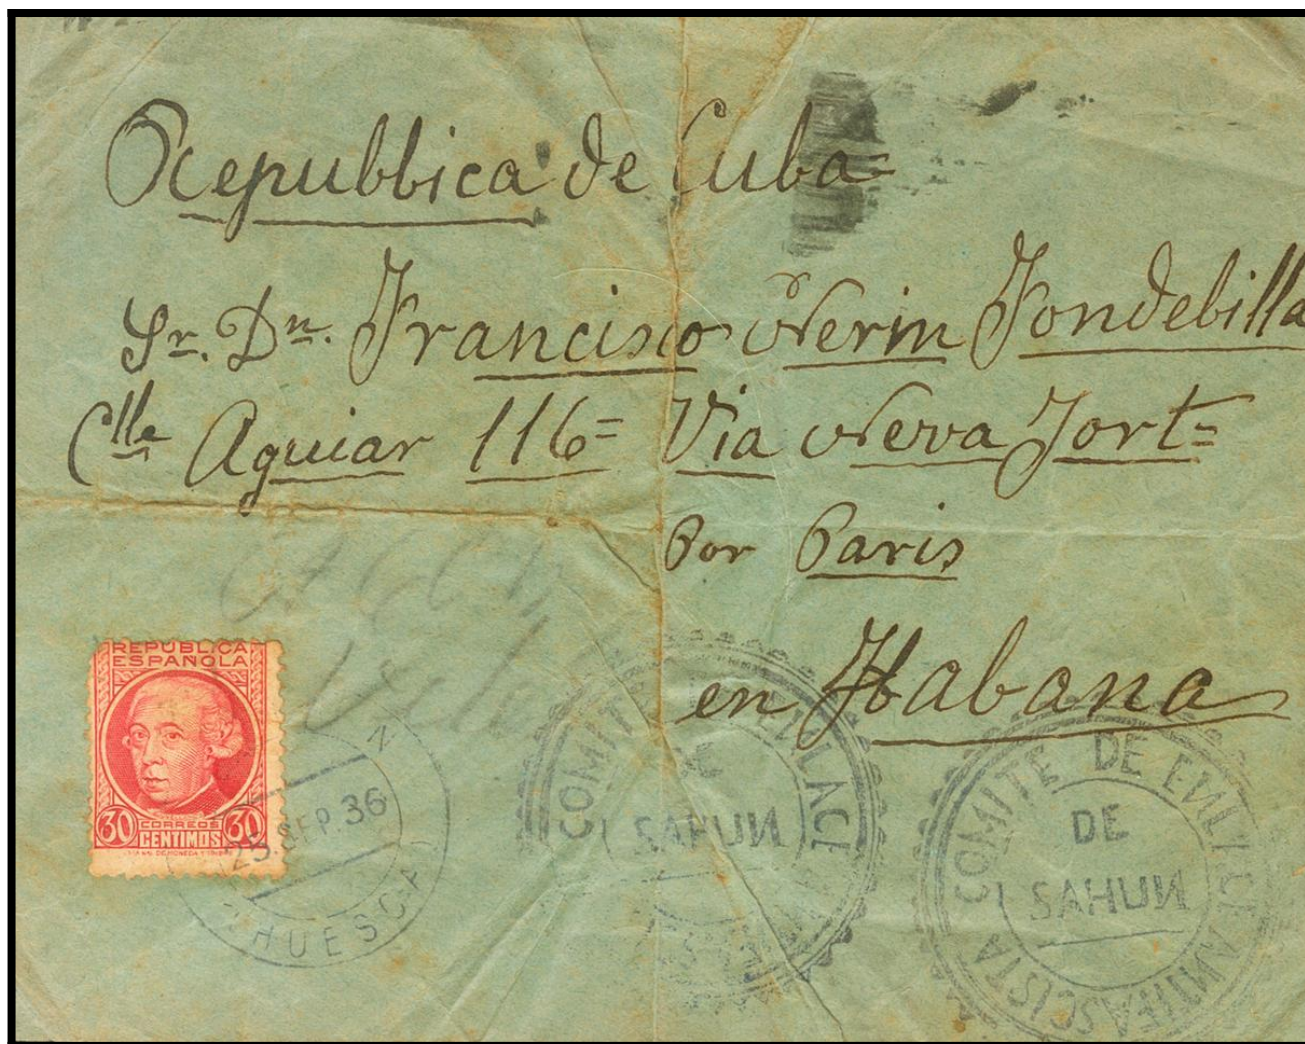 Republica de Cuba=
Sr. Dn. Francisco Nerin Fondebilla
Clle Aguiar 116= Via Neva Jort=
Por Paris
en Habana
REPUBLICA
ESPAÑOLA
30 CORREOS 30
CENTIMOS
25 SEP. 36
HUESCA
COMITE DE
DE
SAHUN
COMITE DE ENLACE ANTIFASCISTA
DE
SAHUN